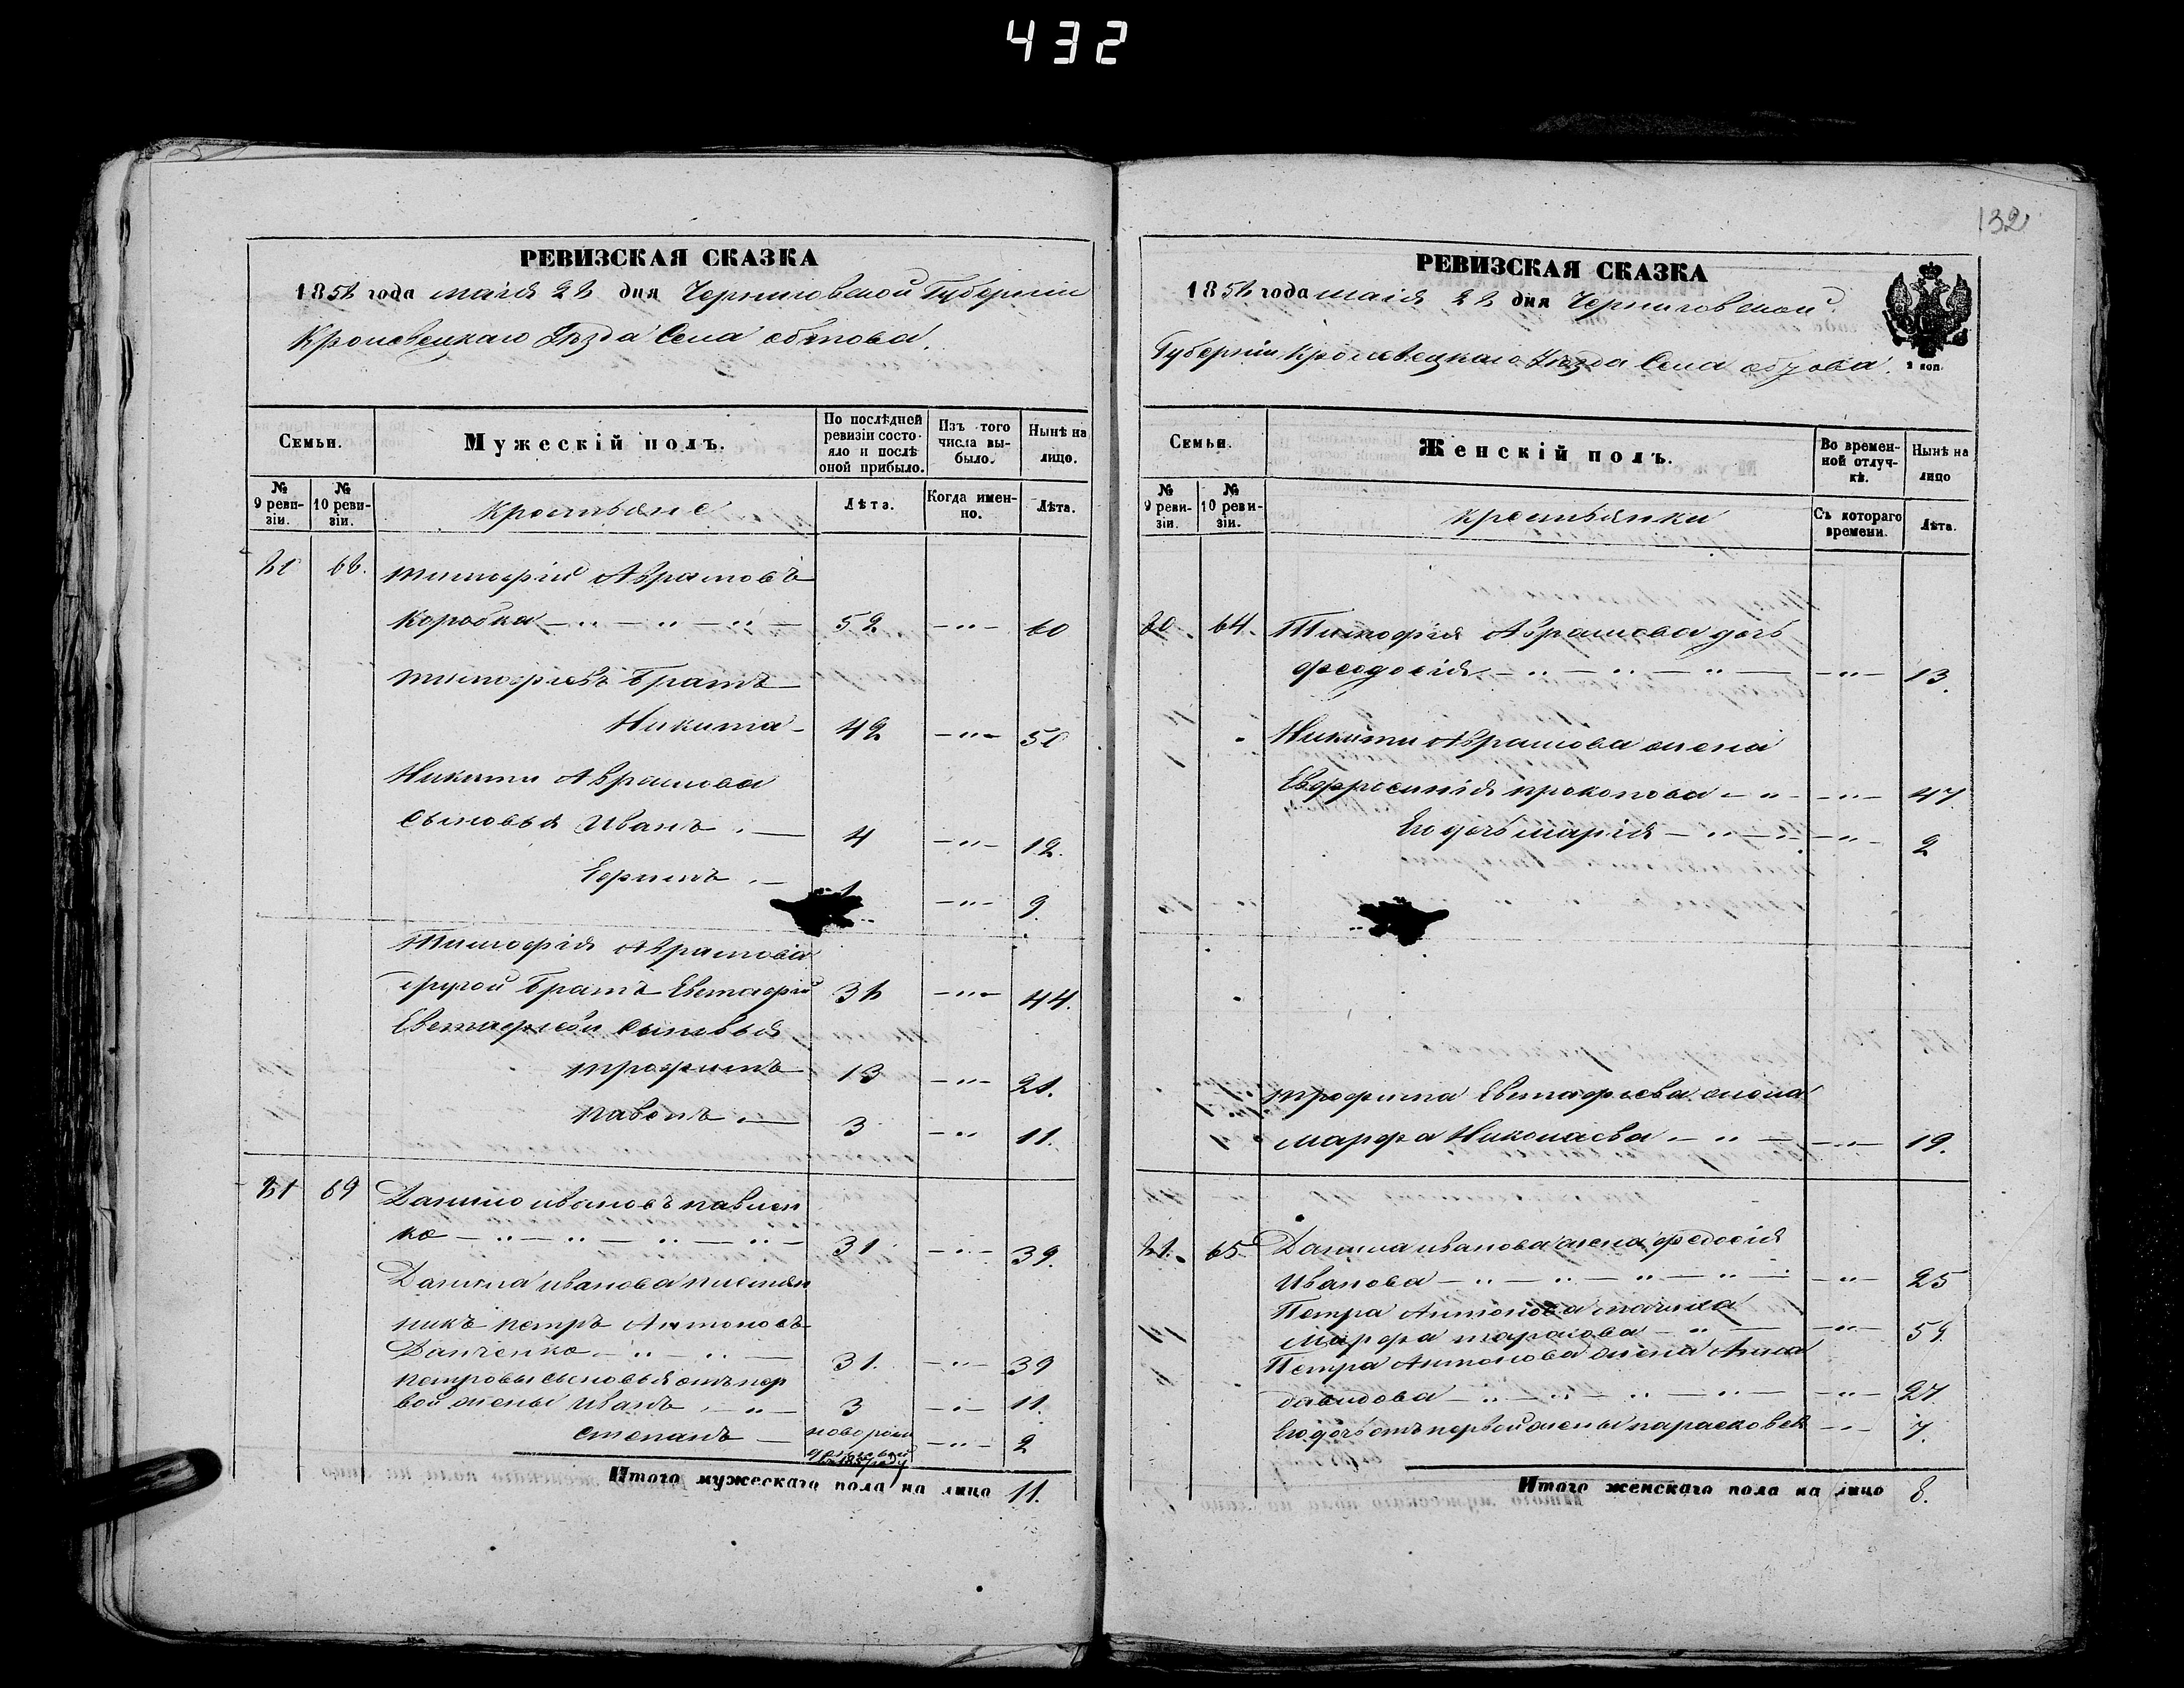 432
132
РЕВИЗСКАЯ СКАЗКА
1858 года маія 28 дня Черниговской Губерніи
Кролевецкаго Уѣзда Села обтова.
Семьи.
Мужескій полъ.
По послѣдней ревизіи состояло и послѣ оной прибыло.
Изъ того числа выбыло.
Нынѣ на лицо.
№ 9 ревизіи.
№ 10 ревизіи.
Крестьяне
Лѣта.
Когда именно.
Лѣта.
Тимофій Абрамовъ
Коробка 52 60
Тимофіевъ Братъ
Никита 42 50
Никити Абрамова
Сыновья Иванъ 4 12.
Ефимъ 1 9.
Тимофія Абрамова
другой Братъ Евстафій 36 44.
Евстафіевы Сыновья
Трофимъ 13 21.
Павелъ 3 11.
69 Данило ивановъ павлен
ко 31 39.
Данила иванова племян
никъ петръ Антоновъ
Данченко 31. 39
петровы сыновья отъ пер
вой жены Иванъ 3 11.
Степанъ новорож 2
Итого мужескаго пола на лицо 11.
РЕВИЗСКАЯ СКАЗКА
1858 года маія 28 дня Черниговской
Губерніи Кролевецкаго Уѣзда Села
2 коп.
Семьи.
Женскій полъ.
Во временной отлучкѣ.
Нынѣ на лицо
№ 9 ревизіи.
№ 10 ревизіи.
Крестьянки
Съ котораго времени.
Лѣта.
64. Тимофія Абрамова дочь
феодосія 13.
Никити Абрамова жена
Евфросинія прокопова 47
Его дочь марія 2
Трофима Евстафіева жена
марфа Николаева 19.
65 Данила иванова жена федосія
Иванова 25
Петра Антонова мачиха
Марфа тарасова 59.
Петра Антонова жена Анна
давидова 27
Его дочь отъ первой жены парасковея 7.
Итого женскаго пола на лицо 8.